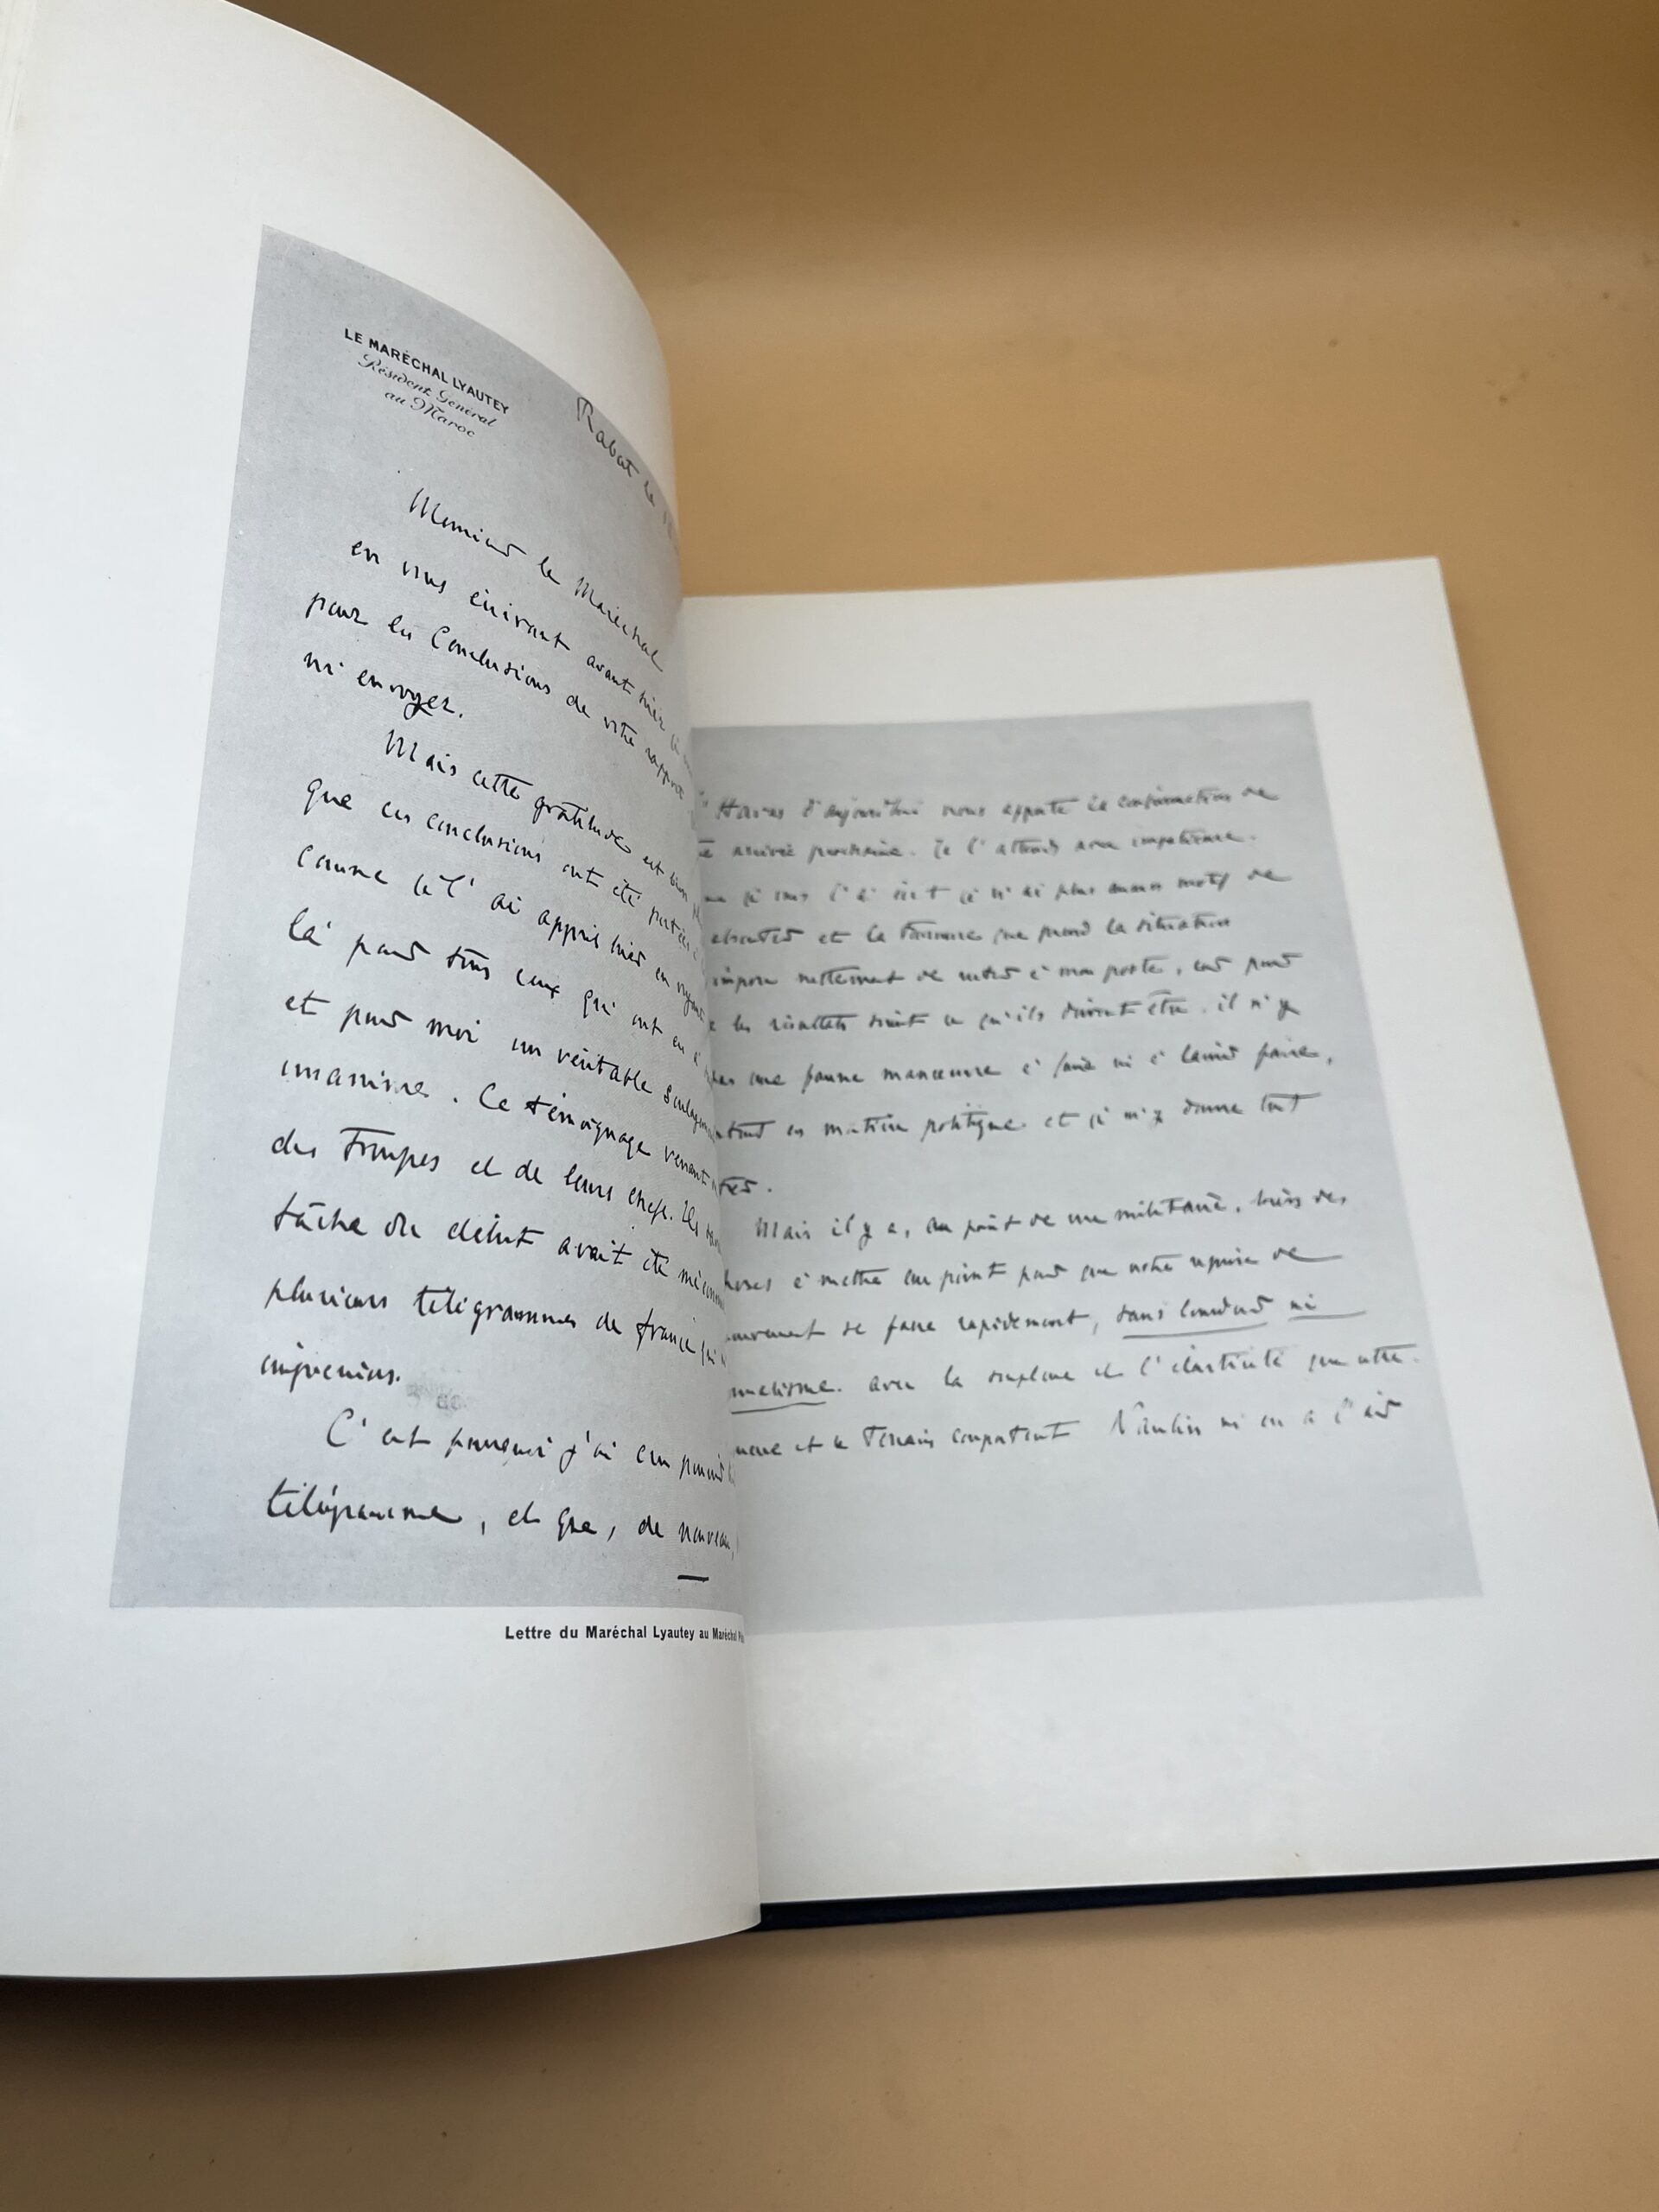 LE MARÉCHAL LYAUTEY
Résident Général
au Maroc
Rabat le
Monsieur le Maréchal
en vous écrivant avant hier
pour les Conclusions de votre rapport
m'envoyer.
Mais cette gratitude est bien
que ces conclusions ont été portées
comme je l'ai appris hier en voyant
là pour tous ceux qui ont eu à
et pour moi un véritable soulagement
immense. Ce témoignage venant
des Troupes et de leurs chefs. Ils
tâche du début avait été
plusieurs télégrammes de france
C'est pourquoi j'ai cru pouvoir
télégramme, et que, de nouveau,
Lettre du Maréchal Lyautey au Maréchal
Havas d'aujourd'hui nous apporte la confirmation de
arrivée prochaine. Je l'attends avec impatience.
je vous l'ai écrit je n'ai plus aucun motif de
et la tournure que prend la situation
impose nettement de rester à mon poste, car pour
les résultats soient ce qu'ils doivent être, il n'y
une fausse manœuvre à faire ni à laisser faire,
en matière politique et je m'y donne tout
Mais il y a, au point de vue militaire, bien des
à mettre au point pour que notre reprise de
se fasse rapidement, sans lourdeur ni
avec la souplesse et l'élasticité que cette
et le terrain comportent Naulin m'en a l'air